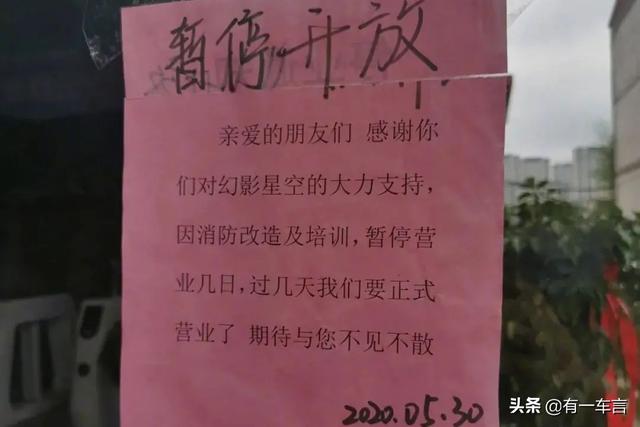 暂停开放
亲爱的朋友们 感谢你
们对幻影星空的大力支持，
因消防改造及培训，暂停营
业几日，过几天我们要正式
营业了 期待与您不见不散
2020.05.30
头条 @有一车言